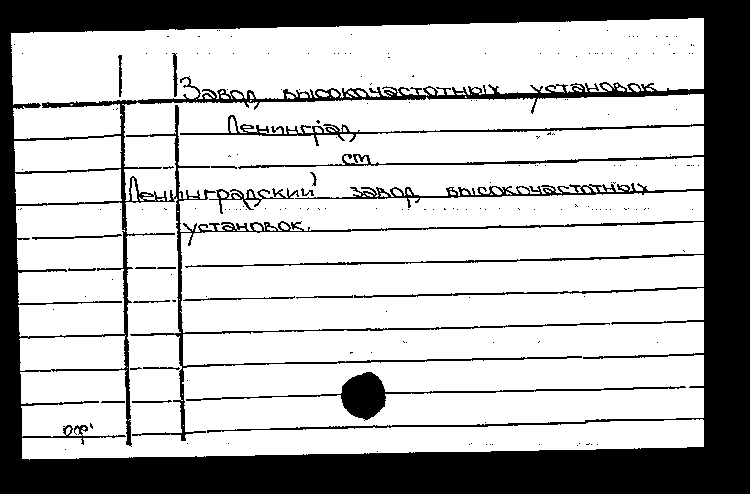 Завод высокочастотных установок.
Ленинград.
см.
Ленинградский завод высокочастотных
установок.